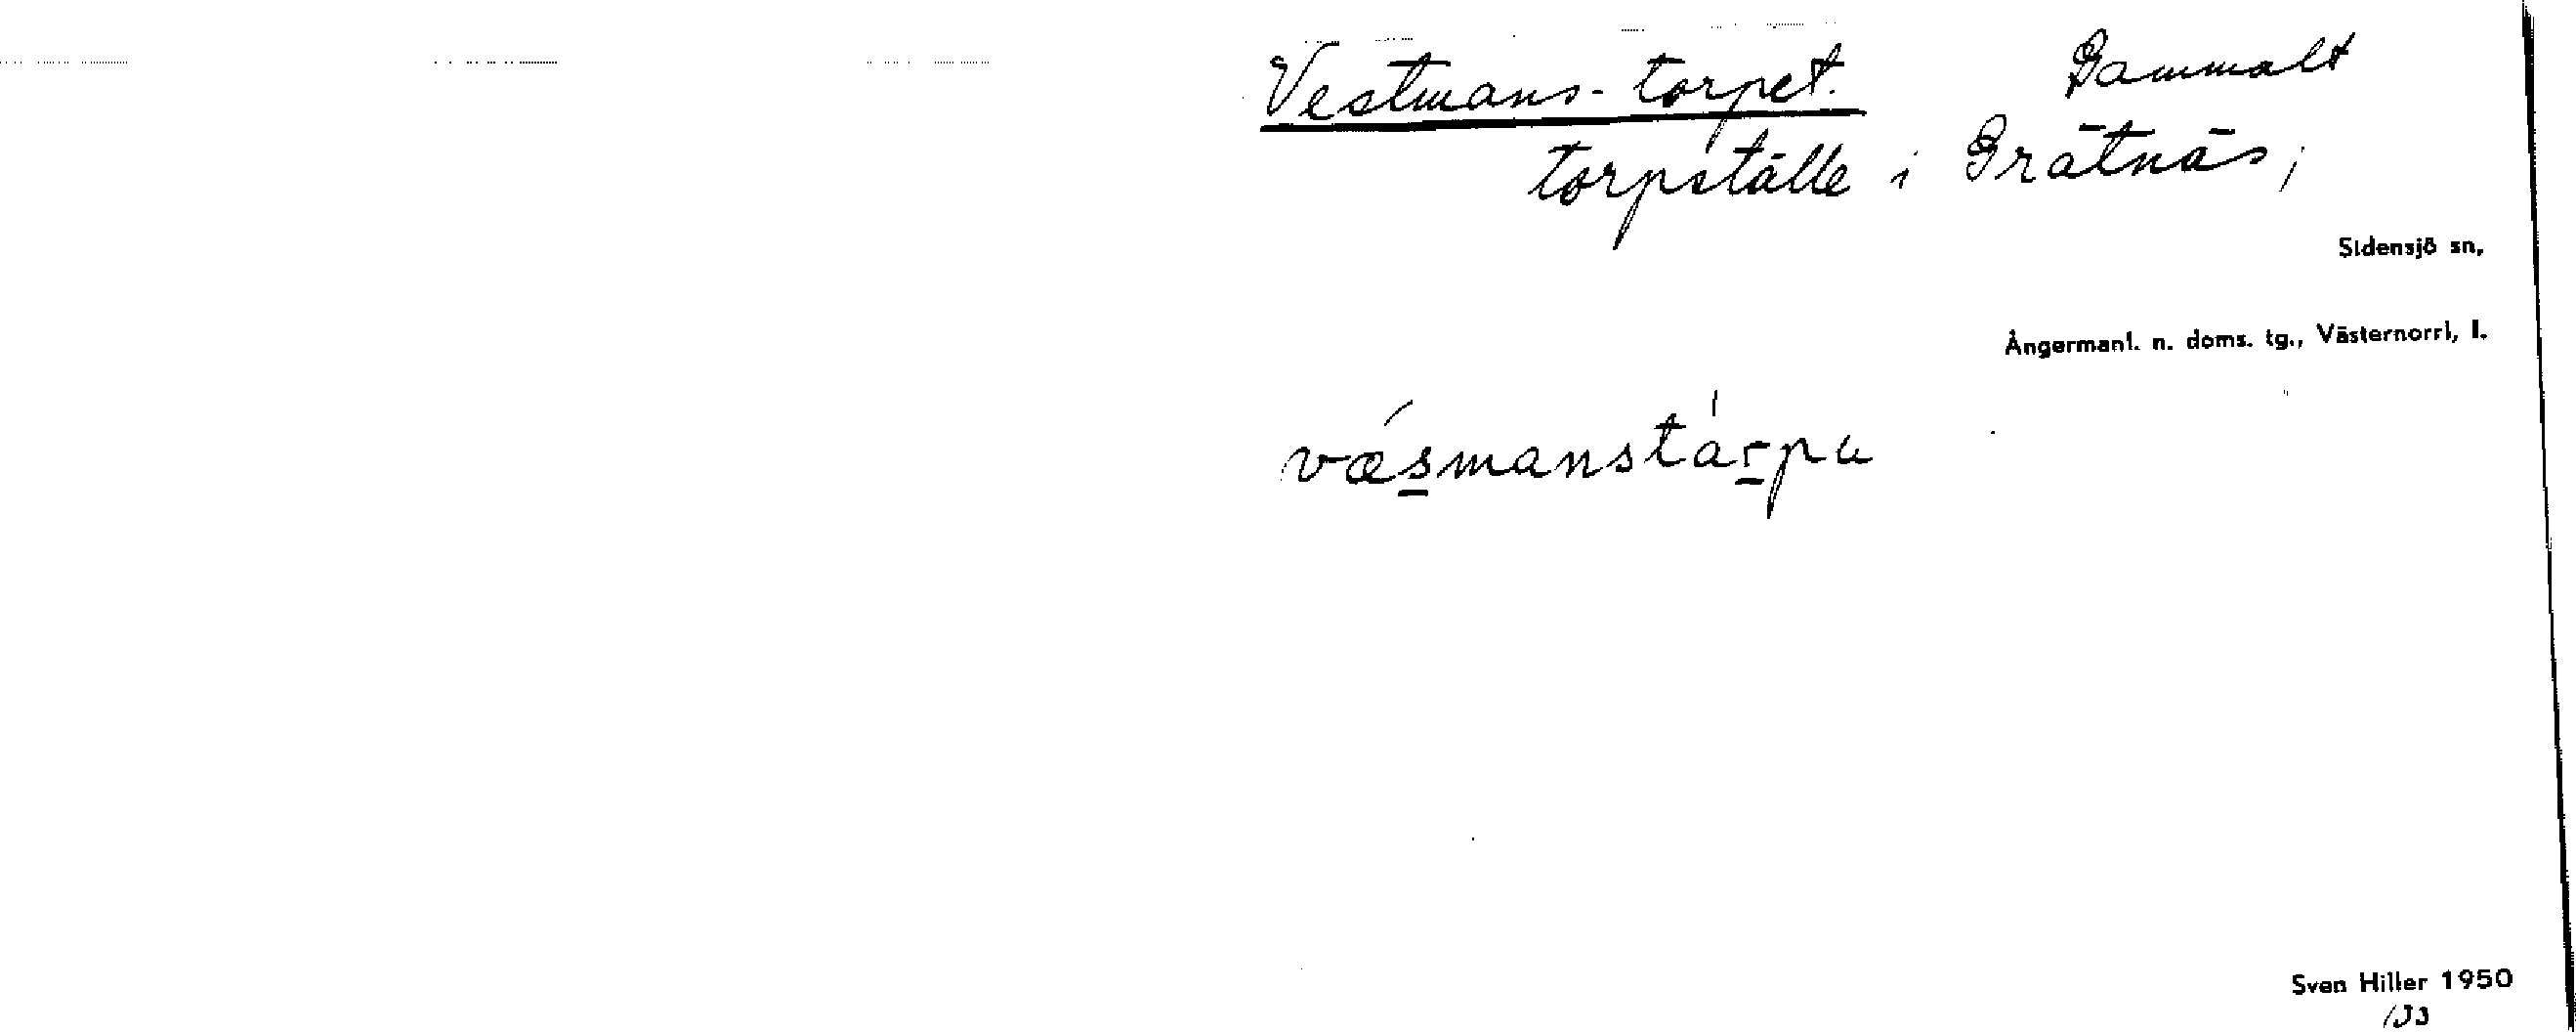 Vestmans-torpet. Gammalt
torpställe i Grätnäs;
Sidensjö sn,
Ångermanl. n. doms. tg., Västernorrl, l.
væ´smanstárpu
Sven Hiller 1950